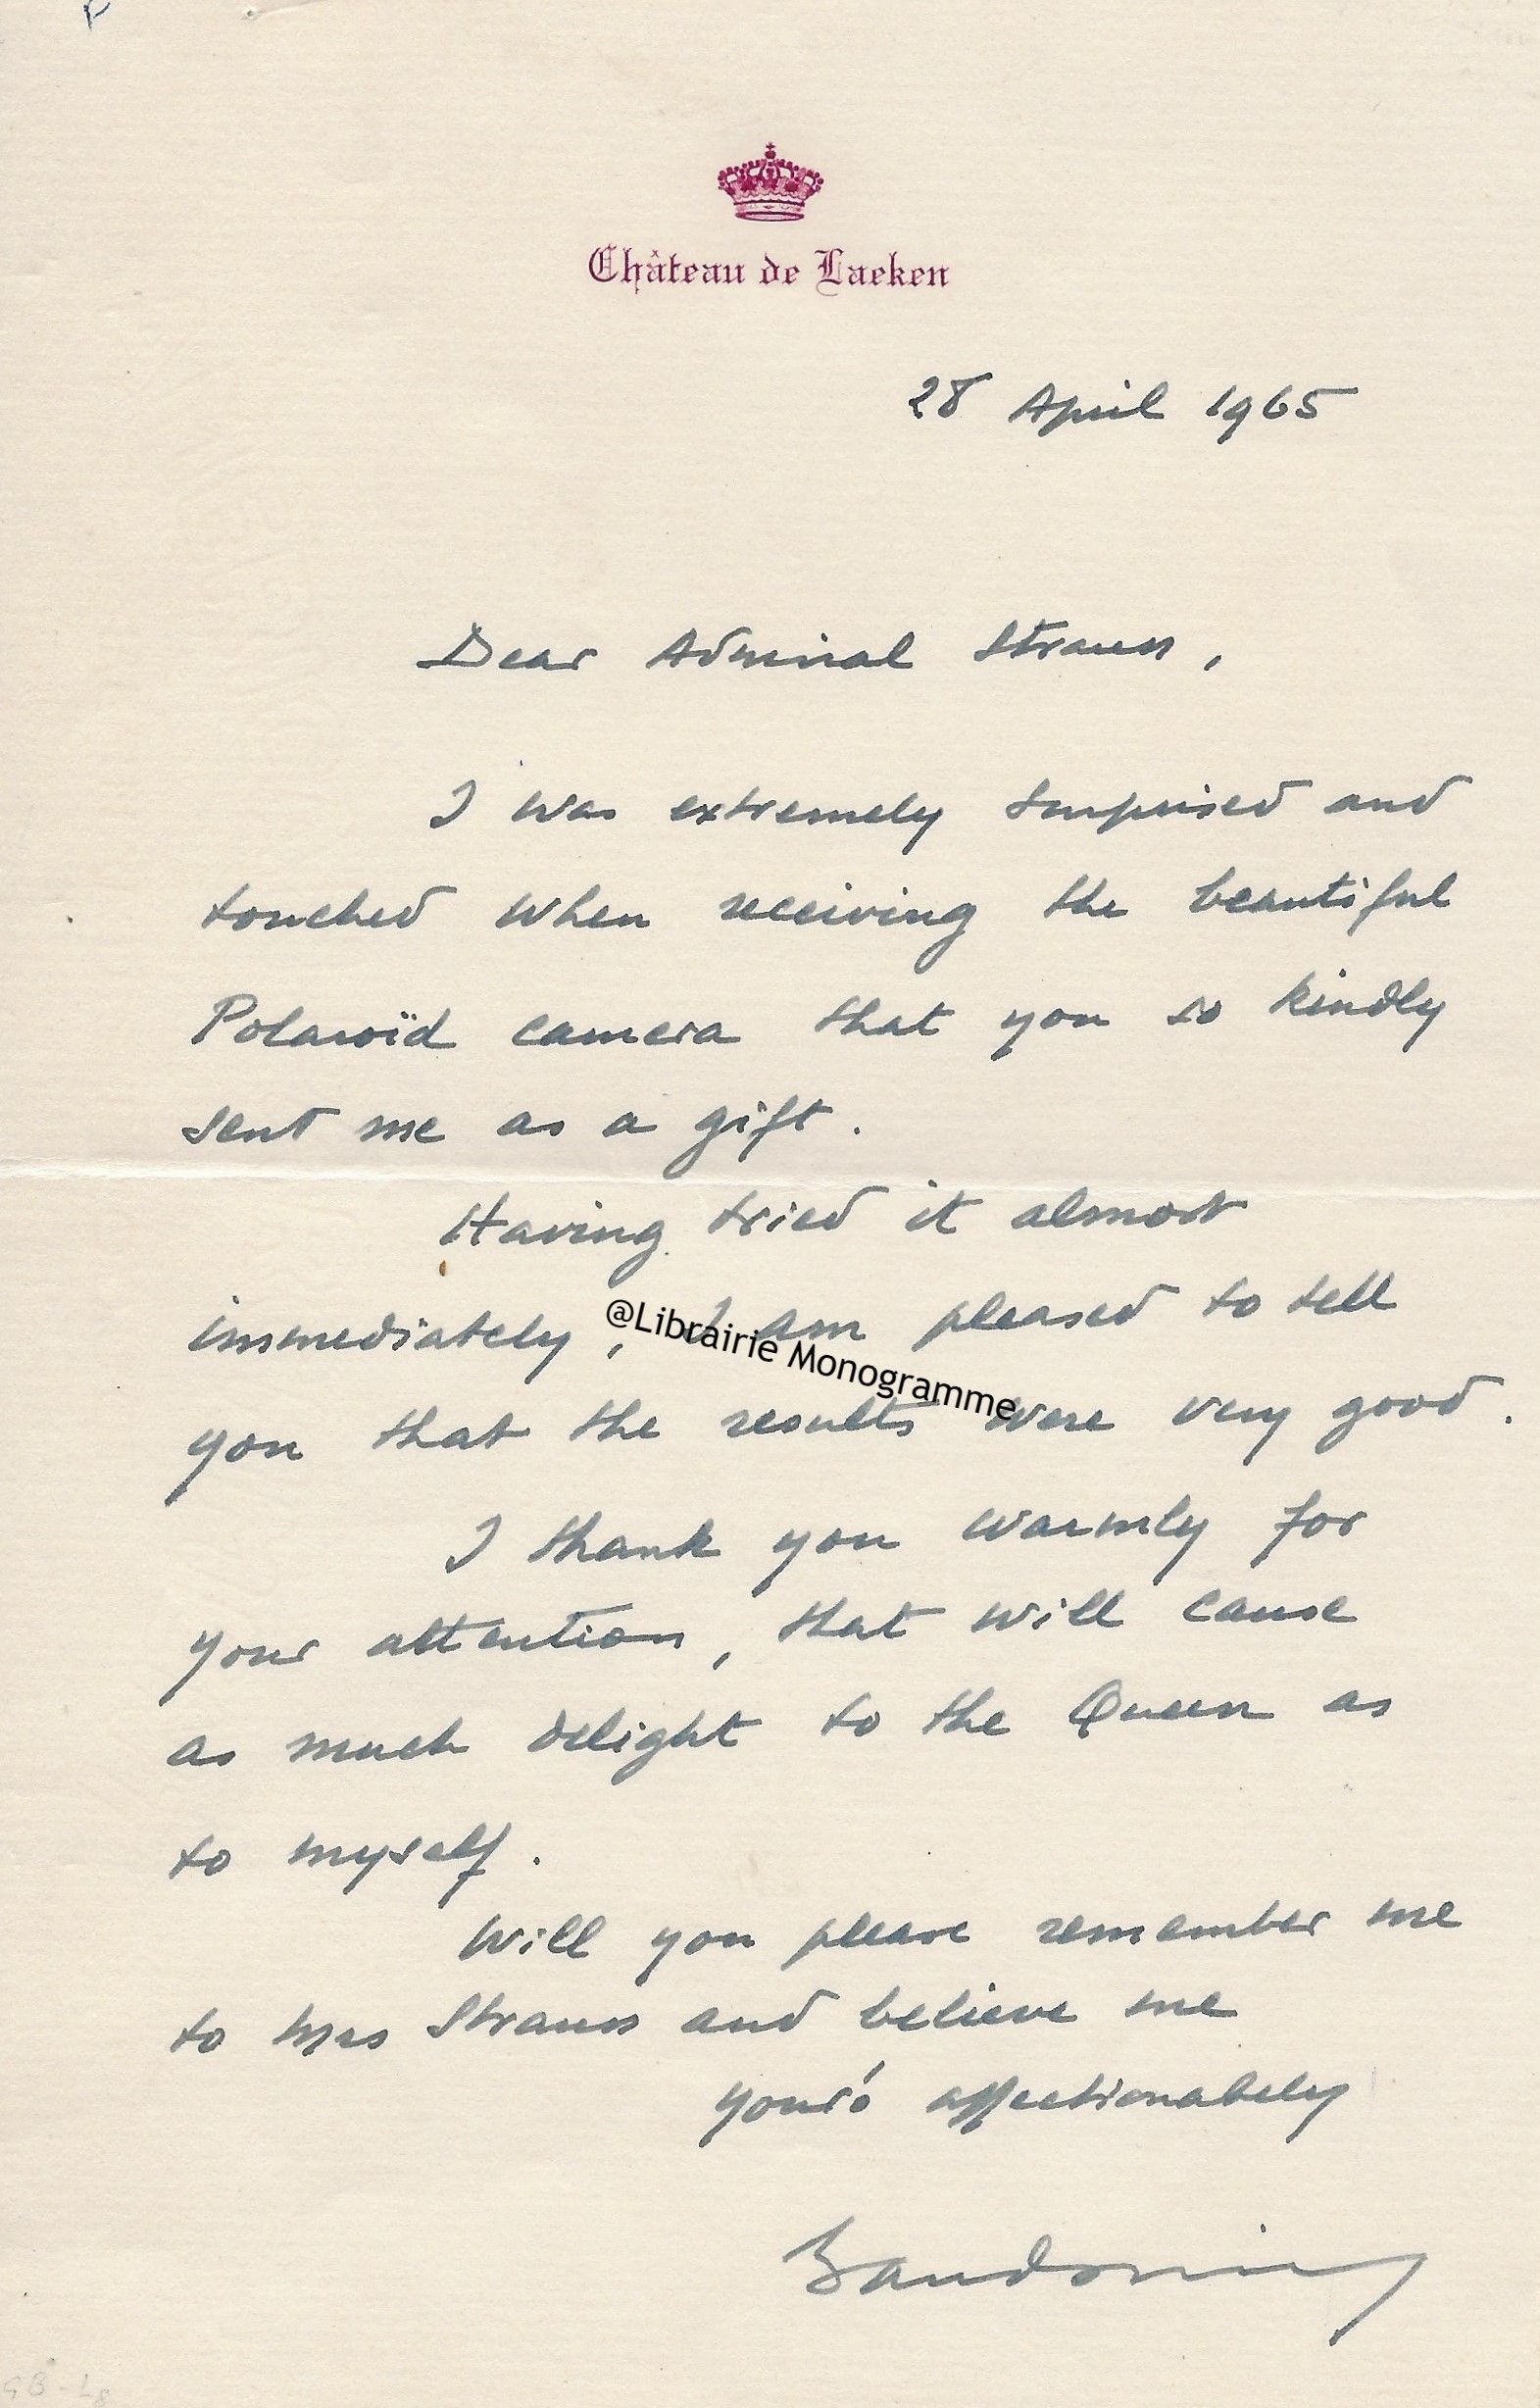 Château de Laeken
28 April 1965
Dear Admiral Strauss,
I was extremely surprised and
touched when receiving the beautiful
Polaroïd camera that you so kindly
sent me as a gift.
Having tried it almost
immediately, I am pleased to tell
@Librairie Monogramme
you that the results were very good.
I thank you warmly for
your attention, that will cause
as much delight to the Queen as
to myself.
Will you please remember me
to Mrs Strauss and believe me
yours affectionately
Baudouin